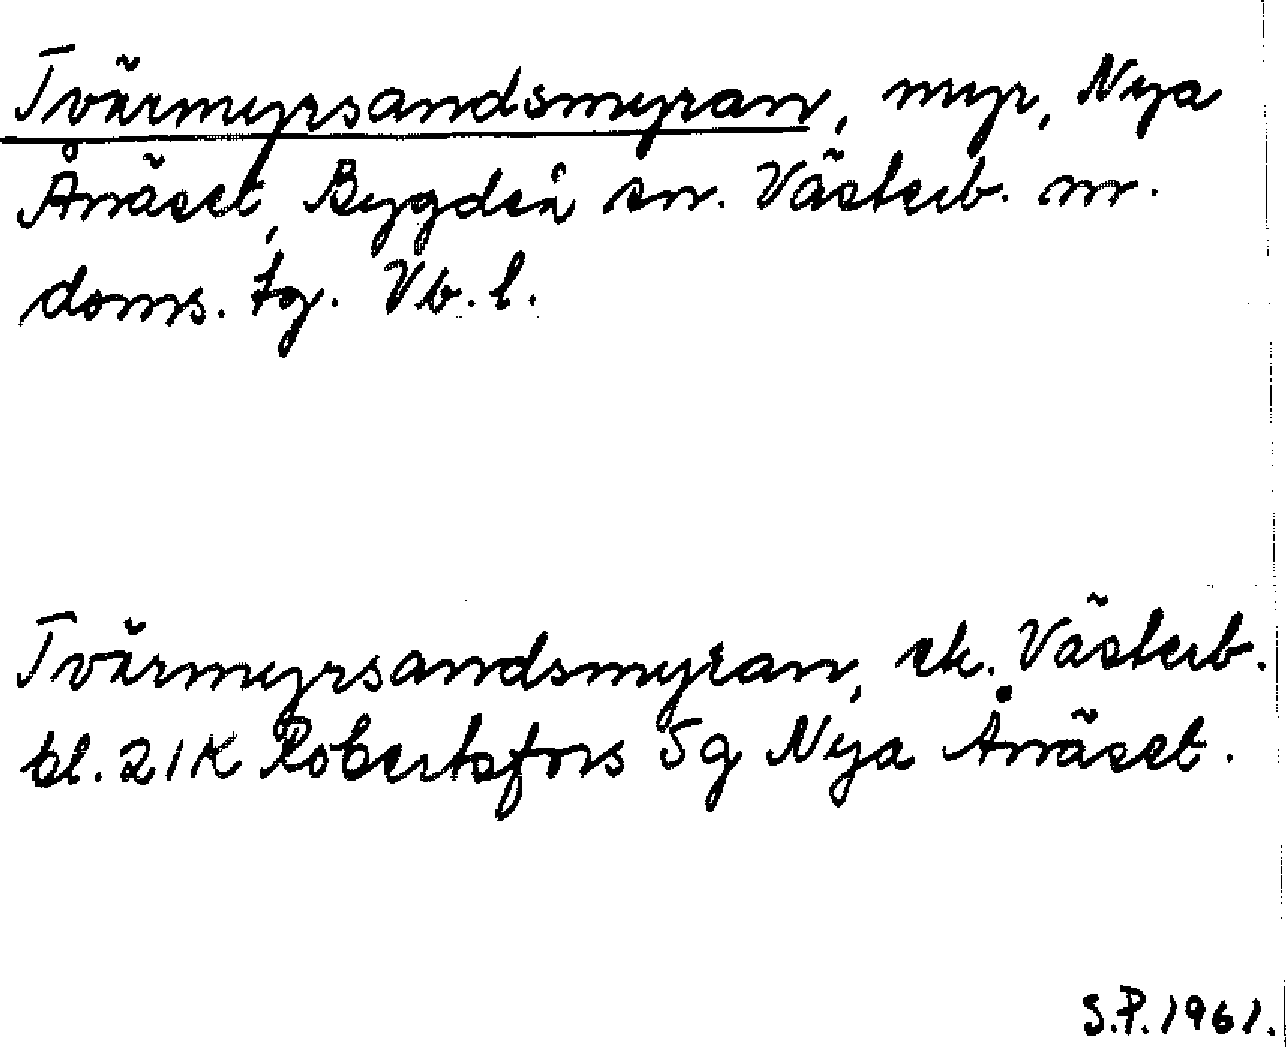 Tvärmyrsandsmyran, myr, Nya
Ånäset, Bygdeå sn. Västerb. m.
doms. tg. Vb. l.
Tvärmyrsandsmyran, ek. Västerb.
bl. 21K Robertsfors 5g Nya Ånäset.
S.P. 1961.